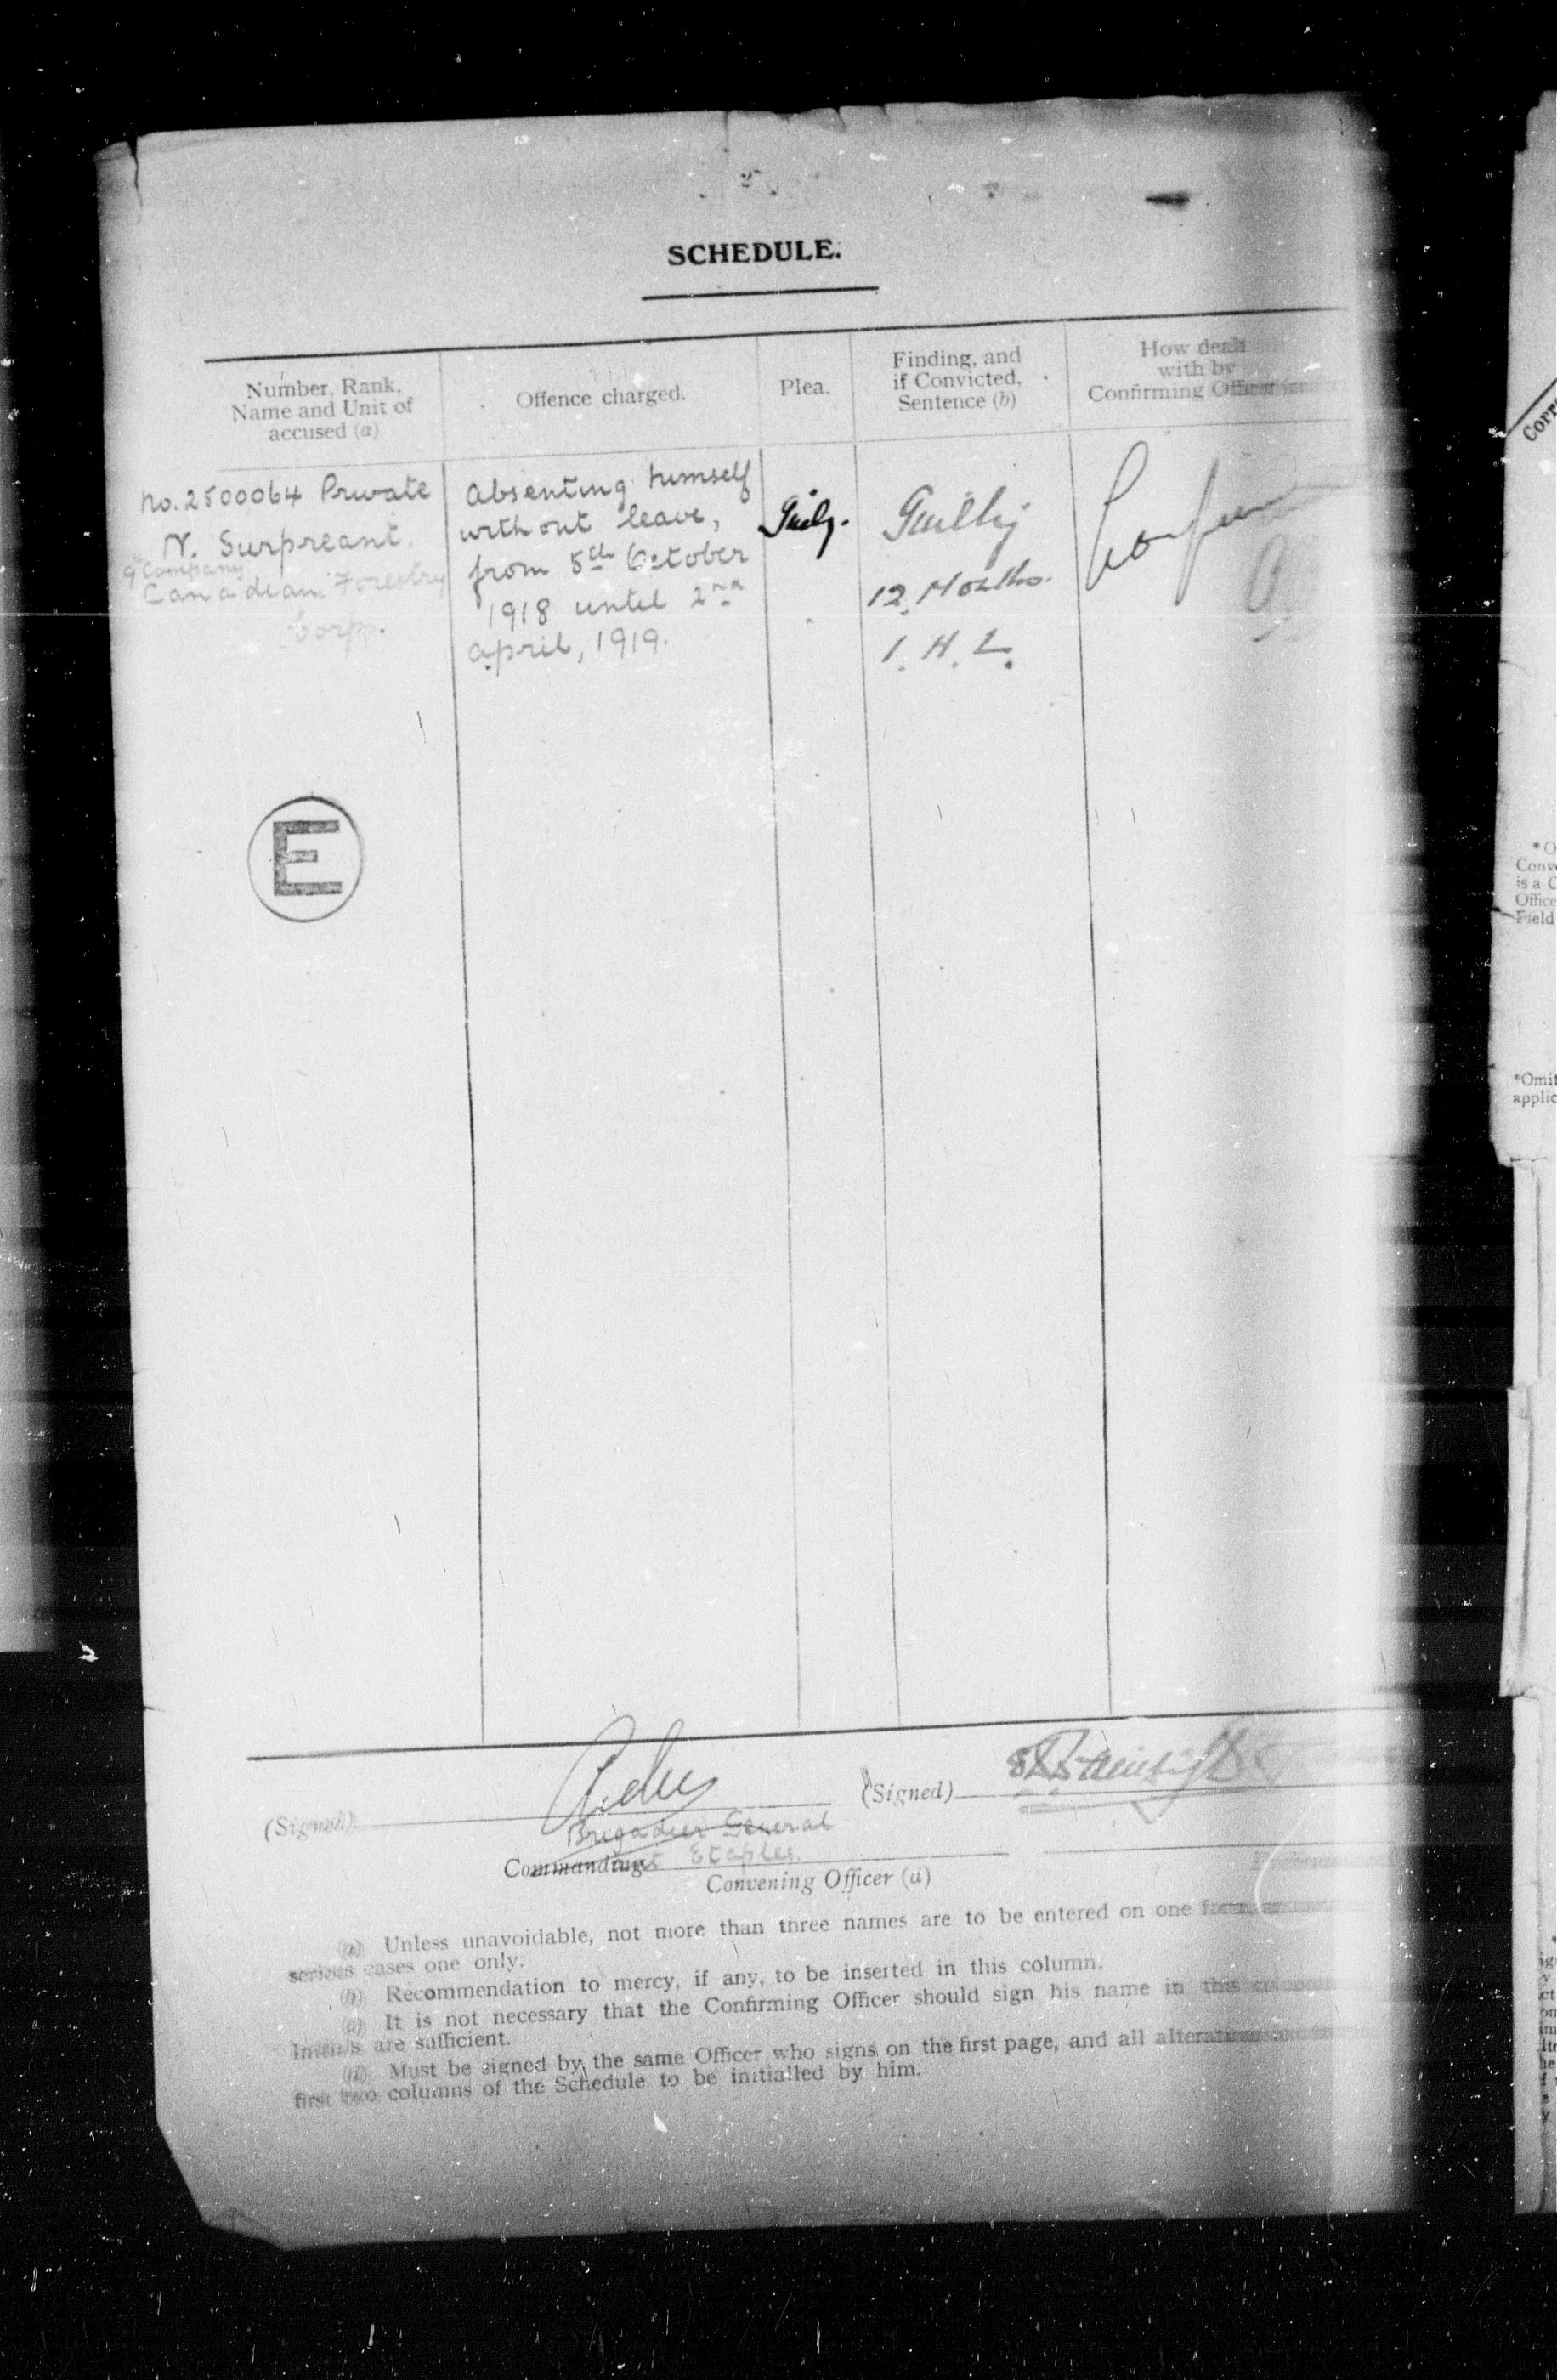 SCHEDULE.
Number, Rank,
Name and Unit of
accused (a)
Offence charged.
Plea.
Finding, and
if Convicted,
Sentence (b)
How dealt
with by
Confirming Officer
No. 2500064 Private
N. Surpreant.
9th Company.
Canadian Forestry
Corps.
Absenting himself
without leave,
from 5th October
1918 until 2nd
April, 1919.
Guilty.
Guilty
12 Months.
I. H. L.
E
(Signed)
Brigadier General
Commanding Etaples.
Convening Officer (d)
(Signed)
(a) Unless unavoidable, not more than three names are to be entered on one
serious cases one only.
(b) Recommendation to mercy, if any, to be inserted in this column.
It is not necessary that the Confirming Officer should sign his name in this
Initials are sufficient.
(d) Must be signed by the same Officer who signs on the first page, and all alterations
first two columns of the Schedule to be initialled by him.
*Omit